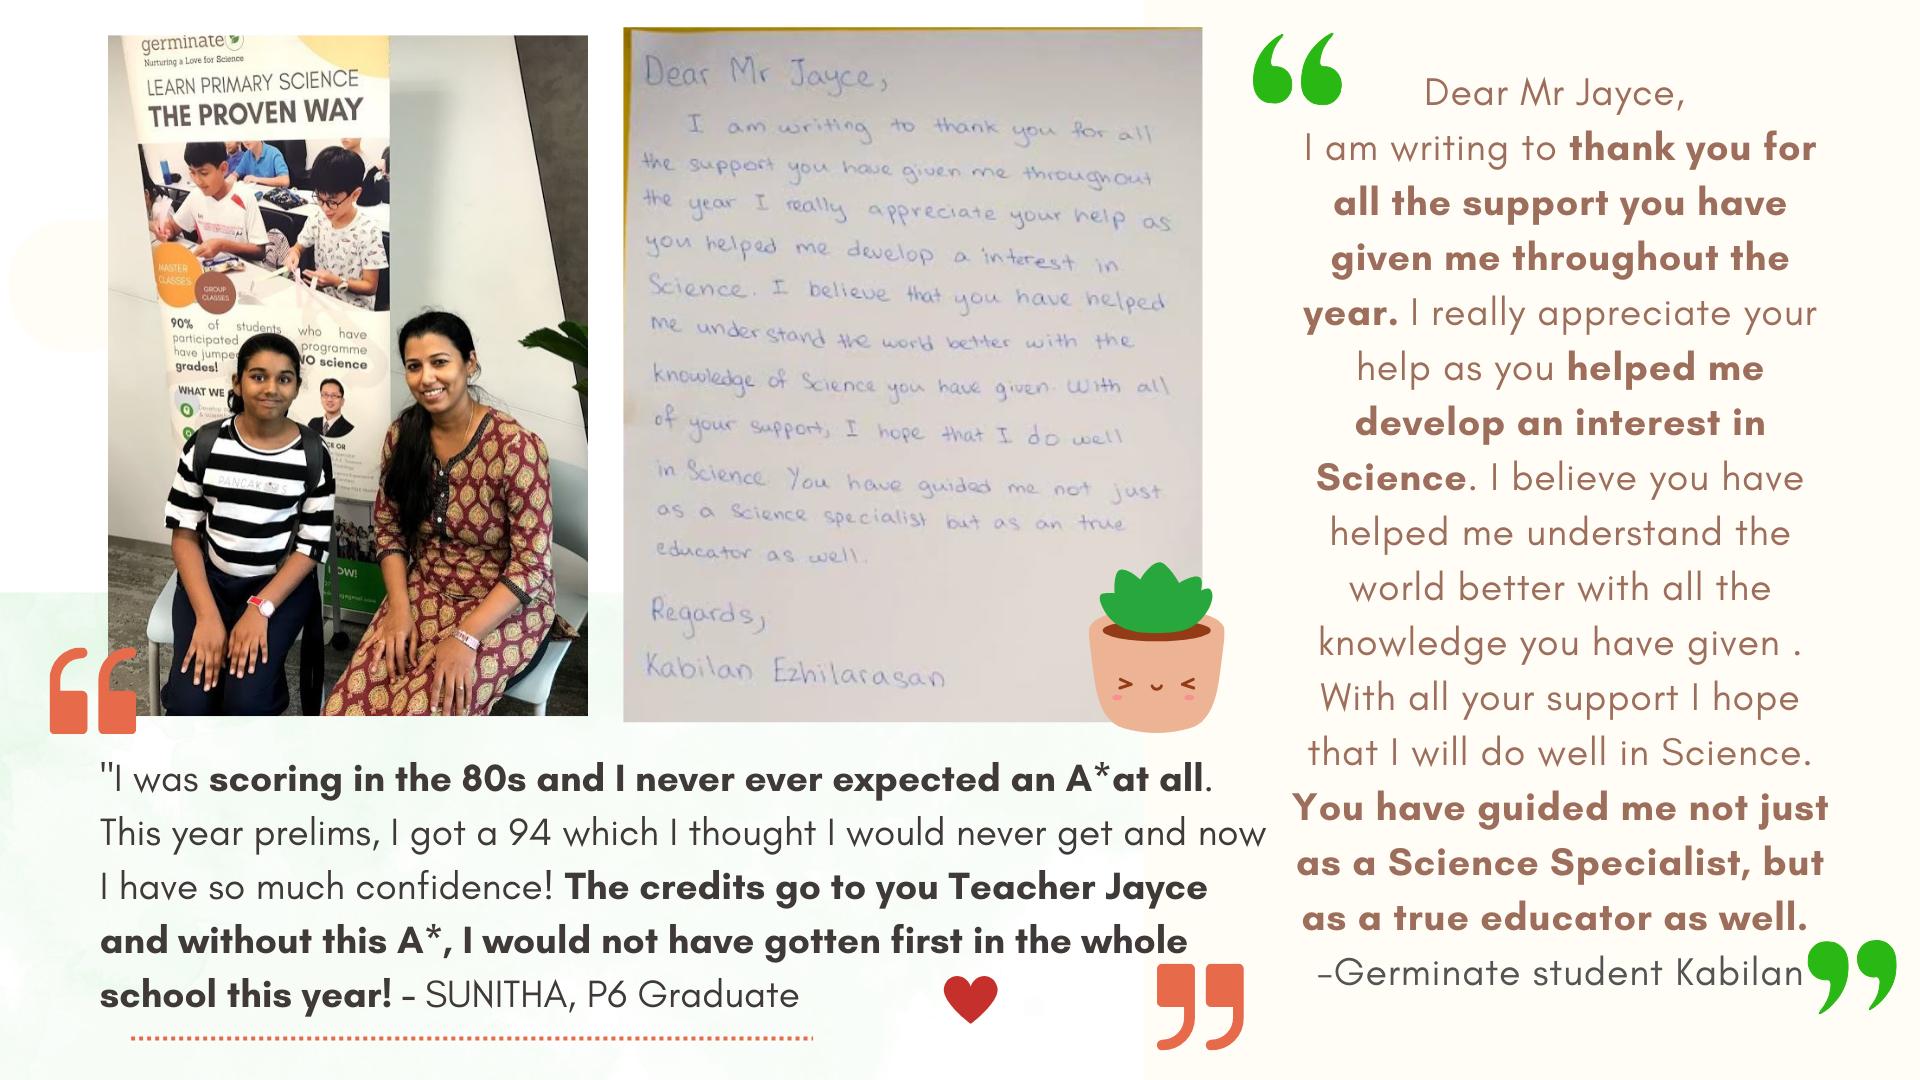 germinate
Nurturing a Love for Science
LEARN PRIMARY SCIENCE
THE PROVEN WAY
MASTER
CLASSES
GROUP
CLASSES
90% of students who have
participated programme
have jumped NO science
grades!
WHAT WE
OW!
PANCAKES
Dear Mr Jayce,
I am writing to thank you for all
the support you have given me throughout
the year I really appreciate your help as
you helped me develop a interest in
Science. I believe that you have helped
me understand the world better with the
knowledge of Science you have given. With all
of your support, I hope that I do well
in Science. You have guided me not just
as a Science specialist but as an true
educator as well.
Regards,
Kabilan Ezhilarasan
"I was scoring in the 80s and I never ever expected an A*at all.
This year prelims, I got a 94 which I thought I would never get and now
I have so much confidence! The credits go to you Teacher Jayce
and without this A*, I would not have gotten first in the whole
school this year! - SUNITHA, P6 Graduate
Dear Mr Jayce,
I am writing to thank you for
all the support you have
given me throughout the
year. I really appreciate your
help as you helped me
develop an interest in
Science. I believe you have
helped me understand the
world better with all the
knowledge you have given .
With all your support I hope
that I will do well in Science.
You have guided me not just
as a Science Specialist, but
as a true educator as well.
-Germinate student Kabilan